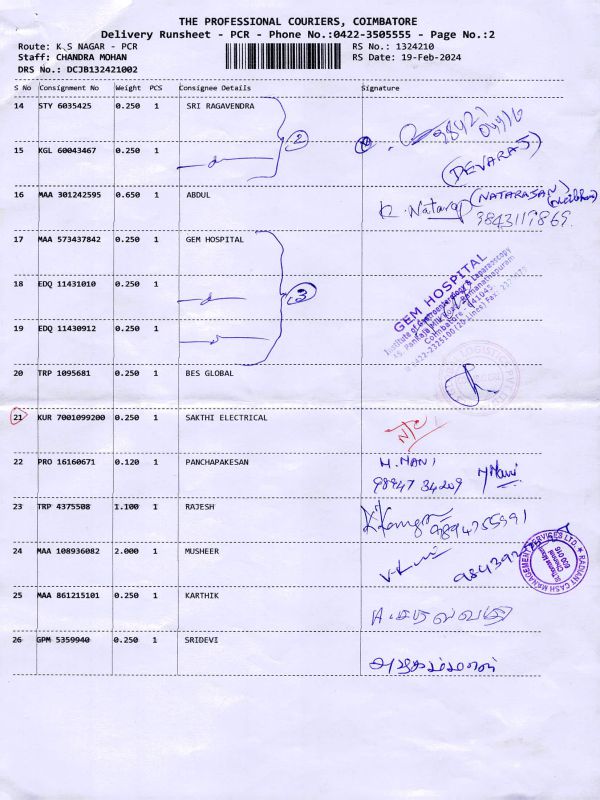 THE PROFESSIONAL COURIERS, COIMBATORE
Delivery Runsheet - PCR - Phone No.:0422-3505555 - Page No.:2
Route: K.S NAGAR - PCR
RS No.: 1324210
Staff: CHANDRA MOHAN
RS Date: 19-Feb-2024
DRS No.: DCJB132421002
S No Consignment No Weight PCS Consignee Details Signature
14 STY 6035425 0.250 1 SRI RAGAVENDRA
2
98427
04416
15 KGL 60043467 0.250 1
(DEVARAJ)
16 MAA 301242595 0.650 1 ABDUL
K. Nataraj (NATARASAN)
9843119869
17 MAA 573437842 0.250 1 GEM HOSPITAL
GEM HOSPITAL
Institute of Gastroenterology & Laparoscopy
45, Pankaja Mill Road, Ramanathapuram
Coimbatore - 641045.
18 EDQ 11431010 0.250 1
3
19 EDQ 11430912 0.250 1
20 TRP 1095681 0.250 1 BES GLOBAL
21 KUR 7001099200 0.250 1 SAKTHI ELECTRICAL
N/C
22 PRO 16160671 0.120 1 PANCHAPAKESAN
M. MANI
98947 34209
23 TRP 4375508 1.100 1 RAJESH
9894755991
24 MAA 108936082 2.000 1 MUSHEER
RADIANT CASH MANAGEMENT SERVICES LTD.
600 016
25 MAA 861215101 0.250 1 KARTHIK
26 GPM 5359940 0.250 1 SRIDEVI